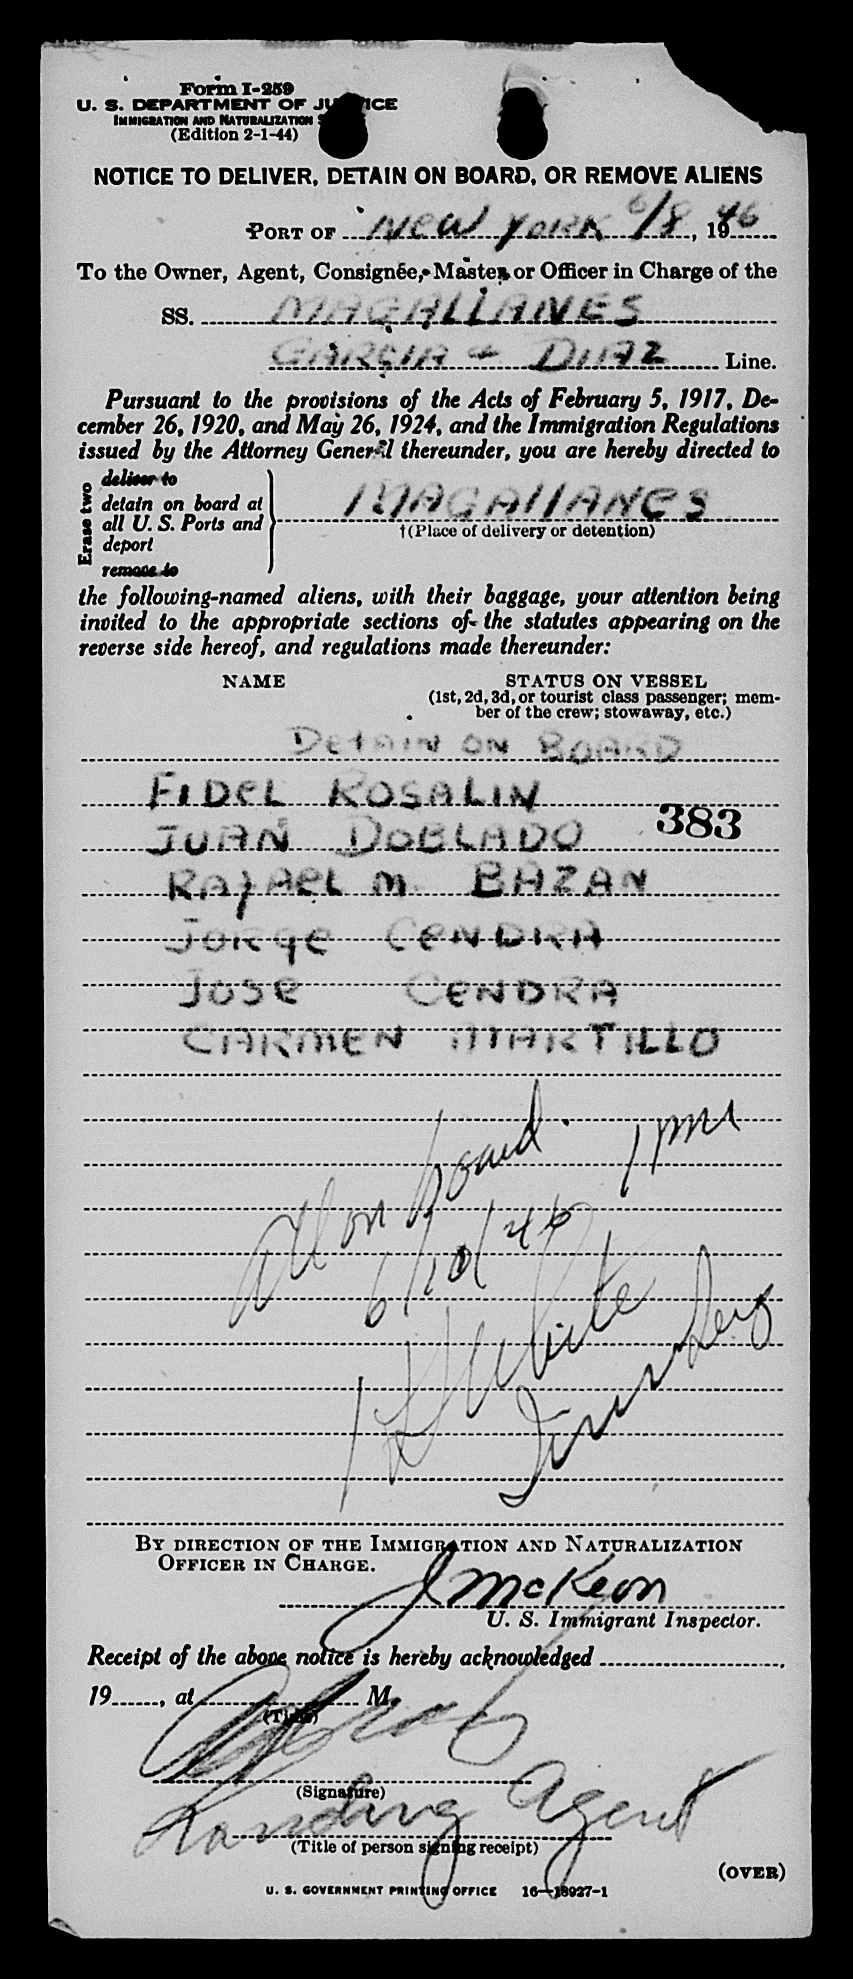 Form I-259
U. S. DEPARTMENT OF JUSTICE
IMMIGRATION AND NATURALIZATION S
(Edition 2-1-44)
NOTICE TO DELIVER, DETAIN ON BOARD, OR REMOVE ALIENS
PORT OF NEW YORK 6/8, 1946
To the Owner, Agent, Consignee, Master, or Officer in Charge of the
SS. MAGALLANES
GARCIA & DIAZ Line.
Pursuant to the provisions of the Acts of February 5, 1917, De-
cember 26, 1920, and May 26, 1924, and the Immigration Regulations
issued by the Attorney General thereunder, you are hereby directed to
Erase two
deliver to
detain on board at
all U. S. Ports and
deport
remove to
MAGALLANES
†(Place of delivery or detention)
the following-named aliens, with their baggage, your attention being
invited to the appropriate sections of the statutes appearing on the
reverse side hereof, and regulations made thereunder:
NAME STATUS ON VESSEL
(1st, 2d, 3d, or tourist class passenger; mem-
ber of the crew; stowaway, etc.)
DETAIN ON BOARD
FIDEL ROSALIN
383
JUAN DOBLADO
RAfAEL M. BAZAN
JORGE CENDRA
JOSE CENDRA
CARMEN MARTILLO
All on board. 1 PM
6/10/46
White
BY DIRECTION OF THE IMMIGRATION AND NATURALIZATION
OFFICER IN CHARGE.
J McKeon
U. S. Immigrant Inspector.
Receipt of the above notice is hereby acknowledged
19, at M.
(Time)
(Signature)
Landing Agent
(Title of person signing receipt)
(OVER)
U. S. GOVERNMENT PRINTING OFFICE 16—18927-1